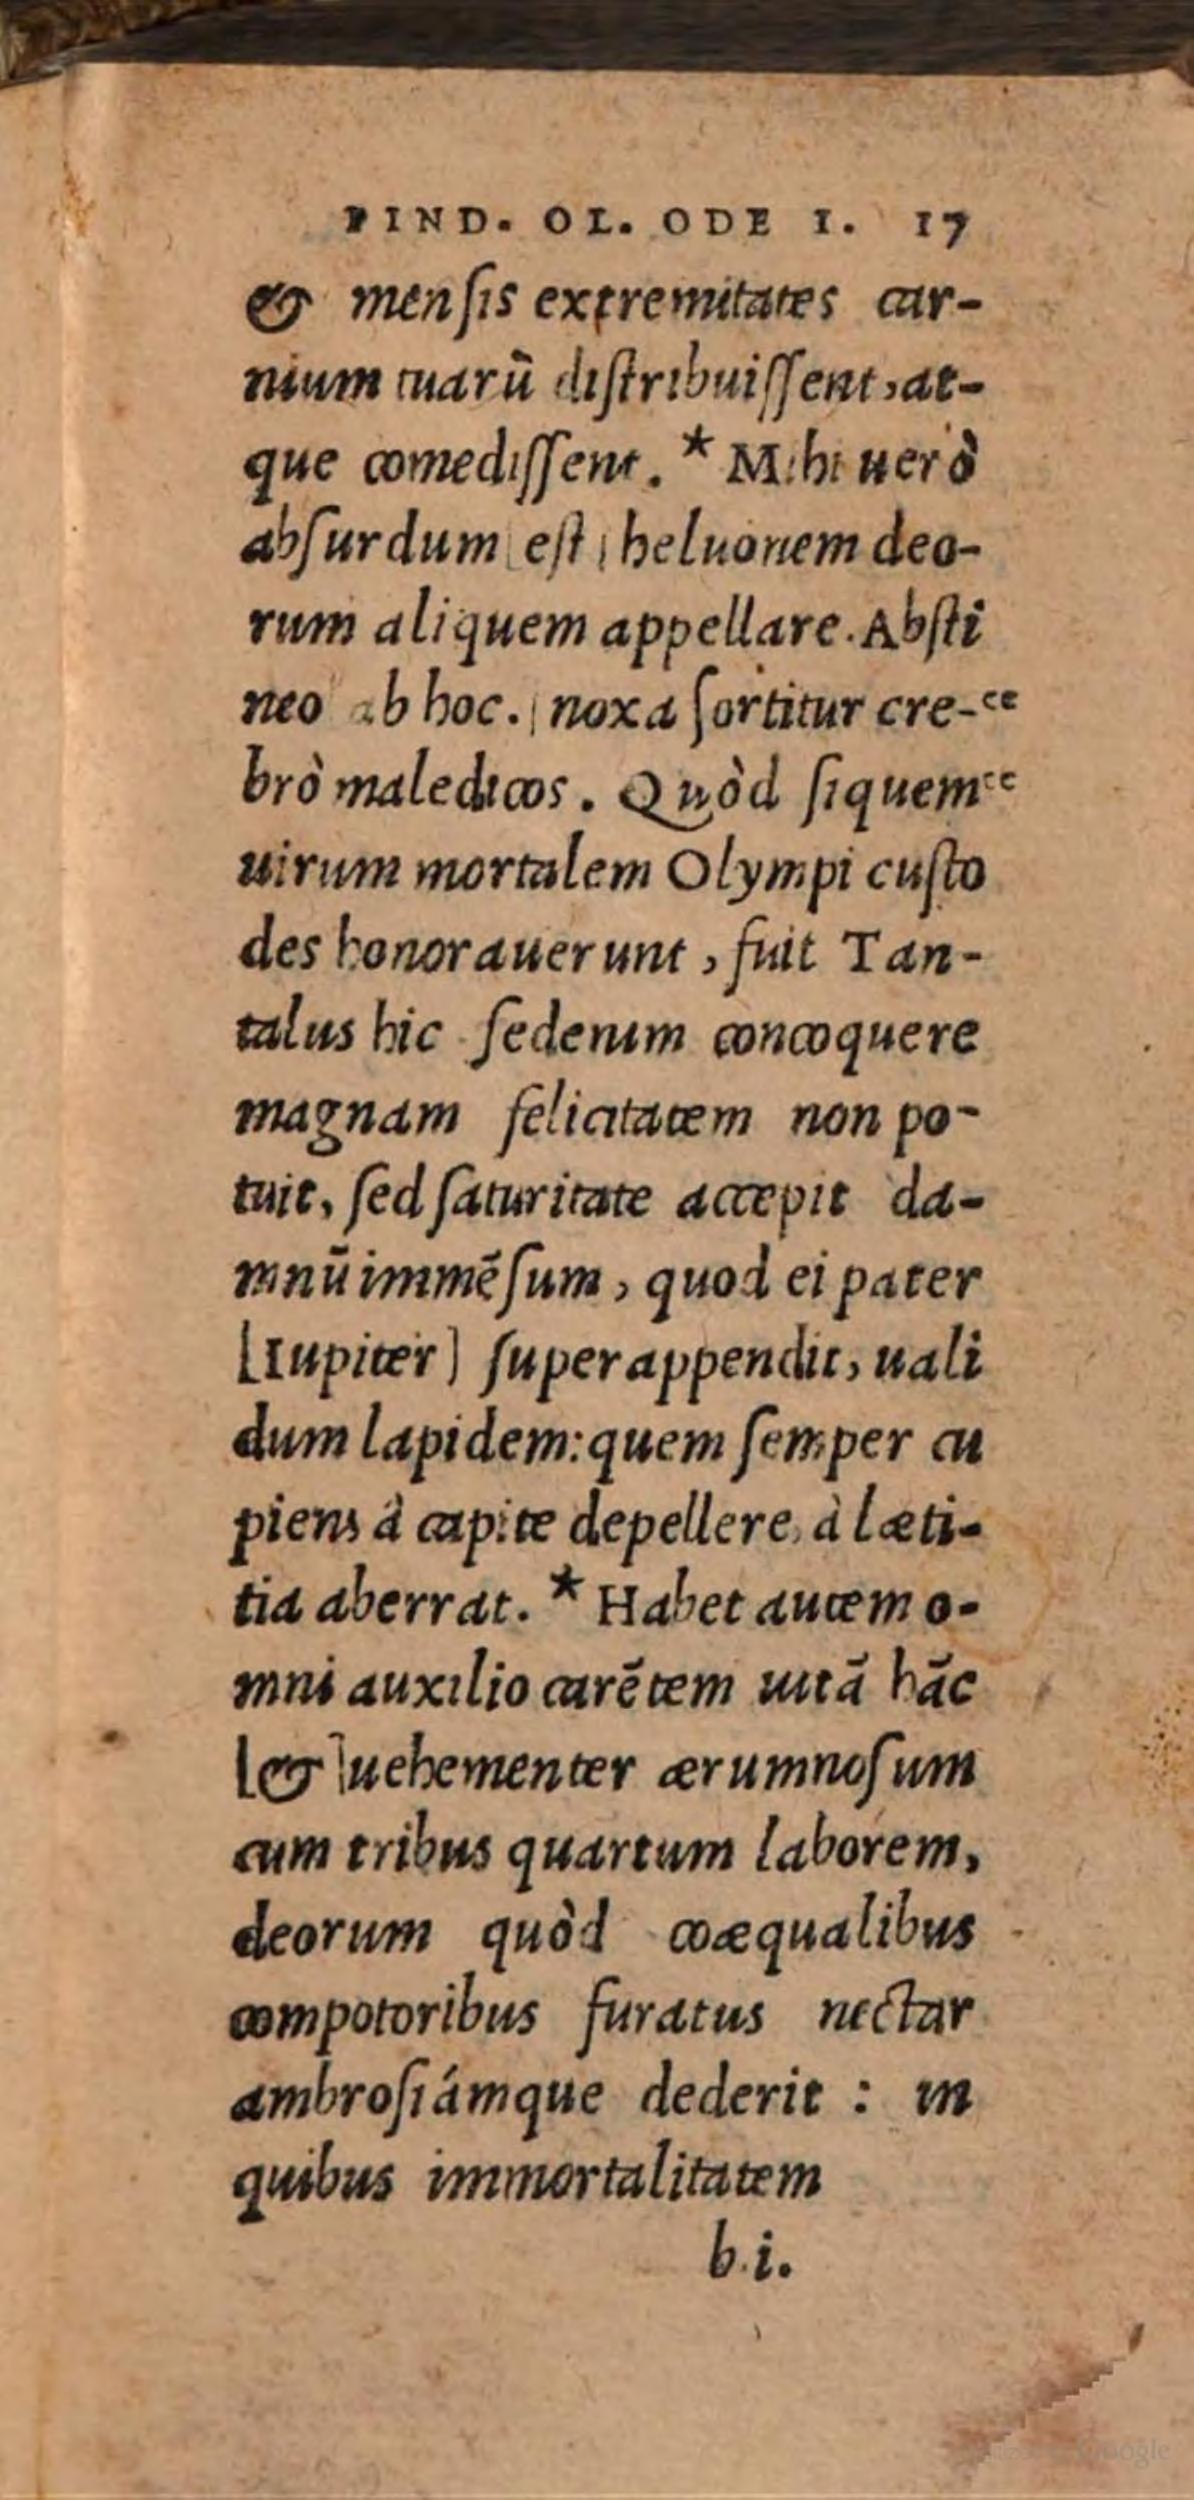 PIND. OL. ODE I. 17
& mensis extremitates car-
nium tuarũ distribuissent, at-
que comedissent. * Mihi uerò
absurdum [est] heluonem deo-
rum aliquem appellare. Absti
neo ab hoc. noxa sortitur cre- “
brò maledicos. Quòd siquem “
uirum mortalem Olympi custo
des honorauerunt, fuit Tan-
talus hic sedenim concoquere
magnam felicitatem non po-
tuit, sed saturitate accepit da-
mnũ immẽsum, quod ei pater
[Iupiter] superappendit, uali
dum lapidem: quem semper cu
piens à capite depellere, à læti-
tia aberrat. * Habet autem o-
mni auxilio carẽtem uitã hãc
[&] uehementer ærumnosum
cum tribus quartum laborem,
deorum quòd coæqualibus
compotoribus furatus nectar
ambrosiámque dederit : in
quibus immortalitatem
b.i.